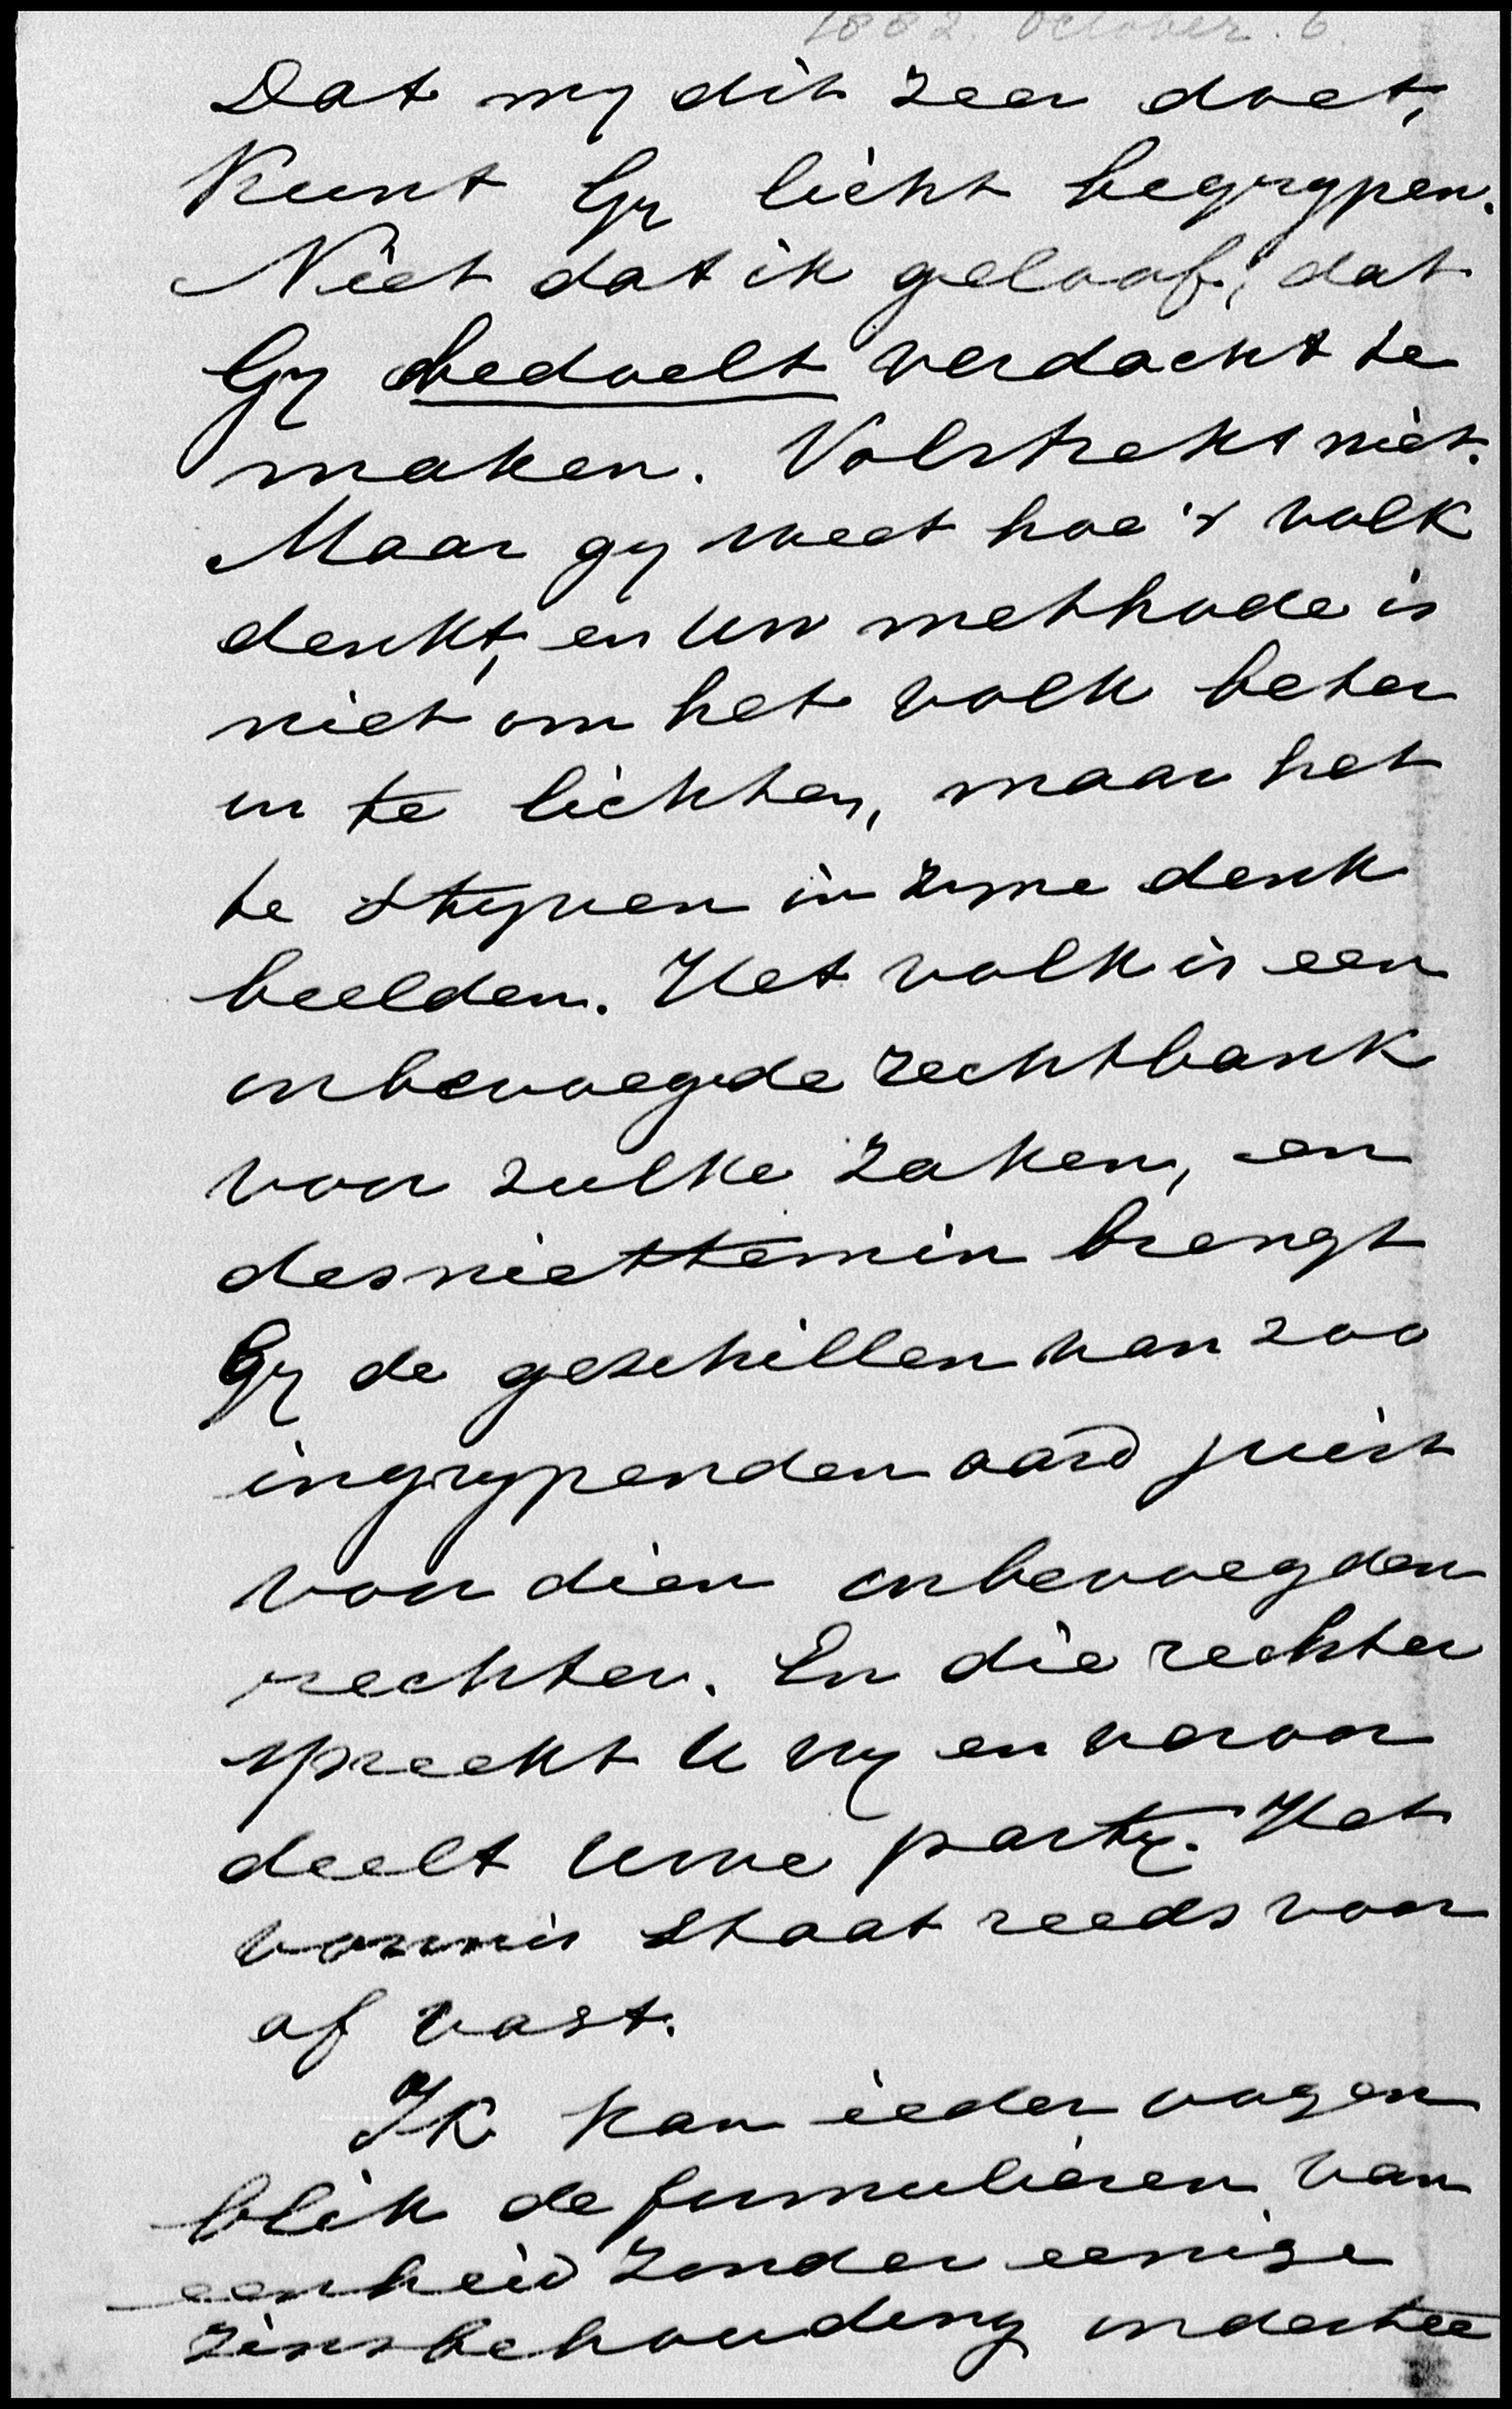 1882. October. 6.
Dat my dit zeer doet,
Kunt Gy licht begrypen.
Niet dat ik geloof, dat
Gy bedoelt verdacht te
maken. Volstrekt niet.
Maar gy weet hoe 't volk
denkt, en Uw methode is
niet om het volk beter
in te lichten, maar het
te styven in zyne denk
beelden. Het volk is een
onbevoegde rechtbank
voor zulke zaken, en
desniettemin brengt
Gy de geschillen van zoo
ingrypenden aard juist
voor dien onbevoegden
rechter. En die rechter
spreekt U vry en veroor
deelt Uwe party. Het
vonnis staat reeds voor
af vast.
Ik kan ieder oogen
blik de formulieren van
eenheid zonder eenige
zinsbehouding ondertee